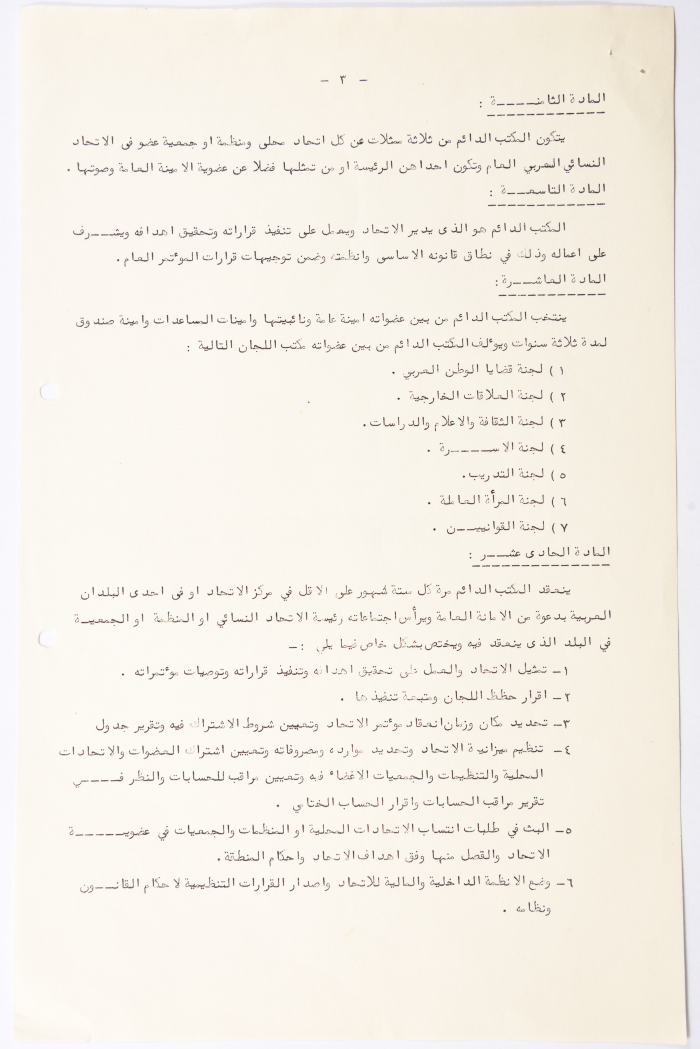 - ٣ -
المادة الثامنـــــة :
يتكون المكتب الدائم من ثلاثة ممثلات عن كل اتحاد محلى ومنظمة او جمعية عضو فى الاتحاد
النسائي العربي العام وتكون احداهن الرئيسة او من تمثلها فضلا عن عضوية الامينة العامة وصوتها .
المادة التاسعـــــة :
المكتب الدائم هو الذى يدير الاتحاد ويعمل على تنفيذ قراراته وتحقيق اهدافه ويشـــرف
على اعماله وذلك في نطاق قانونه الاساسى وانظمته وضمن توجيهات قرارات المؤتمر العام .
المادة العاشـــرة :
ينتخب المكتب الدائم من بين عضواته امينة عامة ونائبيتها وامينات المساعدات وامينة صندوق
لمدة ثلاثة سنوات ويؤلف المكتب الدائم من بين عضواته مكتب اللجان التالية :
١ ) لجنة قضايا الوطن العربي .
٢ ) لجنة العلاقات الخارجية .
٣ ) لجنة الثقافة والاعلام والدراسات .
٤ ) لجنة الاســــرة .
٥ ) لجنة التدريب .
٦ ) لجنة المرأة العاملة .
٧ ) لجنة القوانيـــن .
المادة الحادى عشـــر :
ينعقد المكتب الدائم مرة كل ستة شهور على الاقل في مركز الاتحاد او فى احدى البلدان
العربية بدعوة من الامانة العامة ويرأس اجتماعاته رئيسة الاتحاد النسائي او المنظمة او الجمعيـة
في البلد الذى ينعقد فيه ويختص بشكل خاص فيما يلى :-
١- تمثيل الاتحاد والعمل على تحقيق اهدافه وتنفيذ قراراته وتوصيات مؤتمراته .
٢- اقرار حظظ اللجان ومتبعة تنفيذها .
٣- تحديد مكان وزمان انعقاد مؤتمر الاتحاد وتعيين شروط الاشتراك فيه وتقرير جدول
٤- تنظيم ميزانية الاتحاد وتحديد موارده ومصروفاته وتعيين اشتراك العضوات والاتحادات
المحلية والتنظيمات والجمعيات الاغضاء فبه وتعيين مراقب للحسابات والنظر فـــــي
تقرير مراقب الحسابات واقرار الحساب الختامي .
٥- البث في طلبات انتساب الاتحادات المحلية او المنظمات والجمعيات في عضويـــــة
الاتحاد والفصل منها وفق اهداف الاتحاد واحكام المنطقة .
٦- وضع الانظمة الداخلية والمالية للاتحاد واصدار القرارات التنظيمية لاحكام القانـــون
ونظامه .